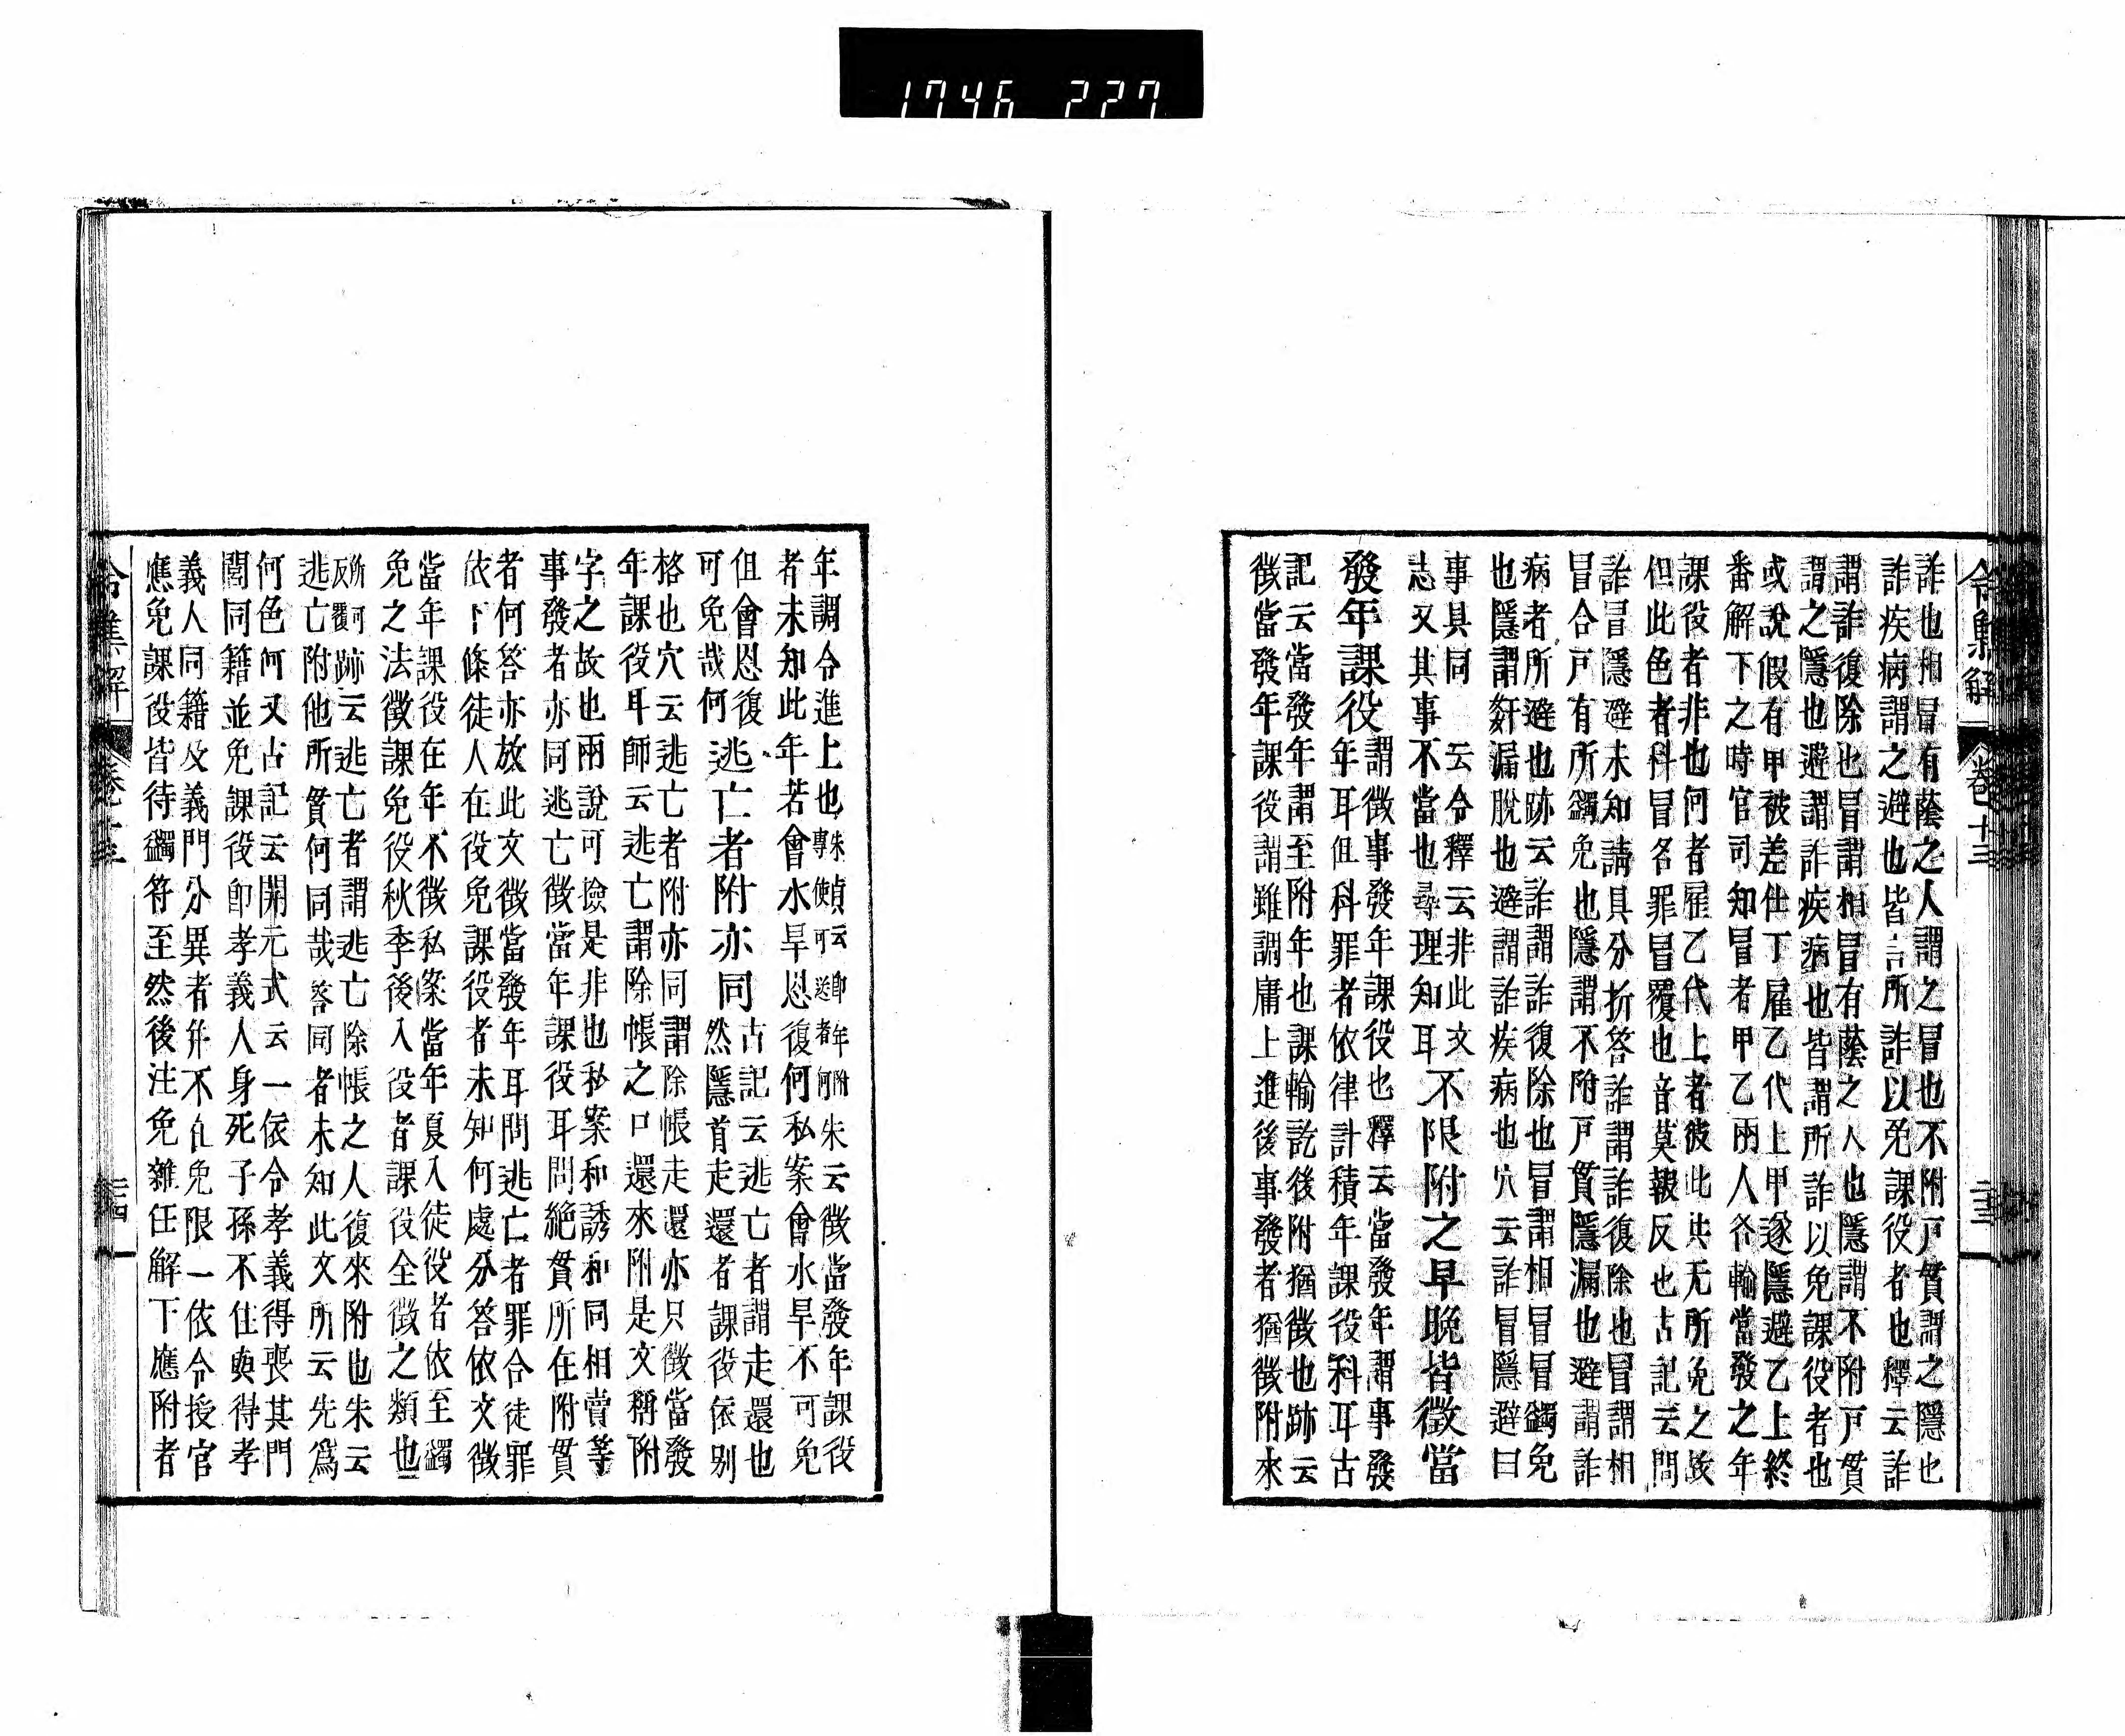 1746 227
令集解 卷十三 三十三
詐也相冒有蔭之人謂之冒也不附戸貫謂之隱也
詐疾病謂之避也皆言所詐以免課役者也釋云詐
謂詐復除也冒謂相冒有蔭之人也隱謂不附戸貫
謂之隱也避謂詐疾病也皆謂所詐以免課役者也
或說假有甲被差仕丁雇乙代上甲遂隱避乙上終
番解下之時官司知冒者甲乙兩人各輸當發之年
課役者非也何者雇乙代上者彼此共无所免之故
但此色者科冒名罪冒覆也音莫報反也古記云問
詐冒隱避未知請具分折答詐謂詐復除也冒謂相
冒合戸有所蠲免也隱謂不附戸貫隱漏也避謂詐
病者所避也跡云詐謂詐復除也冒謂相冒冒蠲免
也隱謂姧漏脫也避謂詐疾病也穴云詐冒隱避曰
事具同 云令釋云非此文
志又其事不當也尋理知耳不限附之早晩皆徵當
發年課役謂徵事發年課役也釋云當發年謂事發
年耳但科罪者依律計積年課役科耳古
記云當發年謂至附年也課輸訖後附猶徵也跡云
徵當發年課役謂雖調庸上進後事發者猶徵附來
年調令進上也朱云專使可送者何貞云即年附朱云徵當發年課役
者未知此年若會水旱恩復何私案會水旱不可免
但會恩復
可免哉何逃亡者附亦同古記云逃亡者謂走還也
然隱首走還者課役依别
格也穴云逃亡者附亦同謂除帳走還亦只徵當發
年課役耳師云逃亡謂除帳之口還來附是文稱附
字之故也兩說可撿是非也私案和誘和同相賣等
事發者亦同逃亡徵當年課役耳問絕貫所在附貫
者何答亦放此文徵當發年耳問逃亡者罪合徒罪
依下條徒人在役免課役者未知何處分答依文徵
當年課役在年不徵私案當年夏入徒役者依至蠲
免之法徵課免役秋季後入役者課役全徵之類也
所可反覆跡云逃亡者謂逃亡除帳之人復來附也朱云
逃亡附他所貫何同哉答同者未知此文所云先爲
何色何又古記云開元式云一依令孝義得喪其門
閭同籍並免課役即孝義人身死子孫不住與得孝
義人同籍及義門分異者并不在免限一依令授官
應免課役皆待蠲符至然後注免雜任解下應附者
令集解 卷十三 三十四